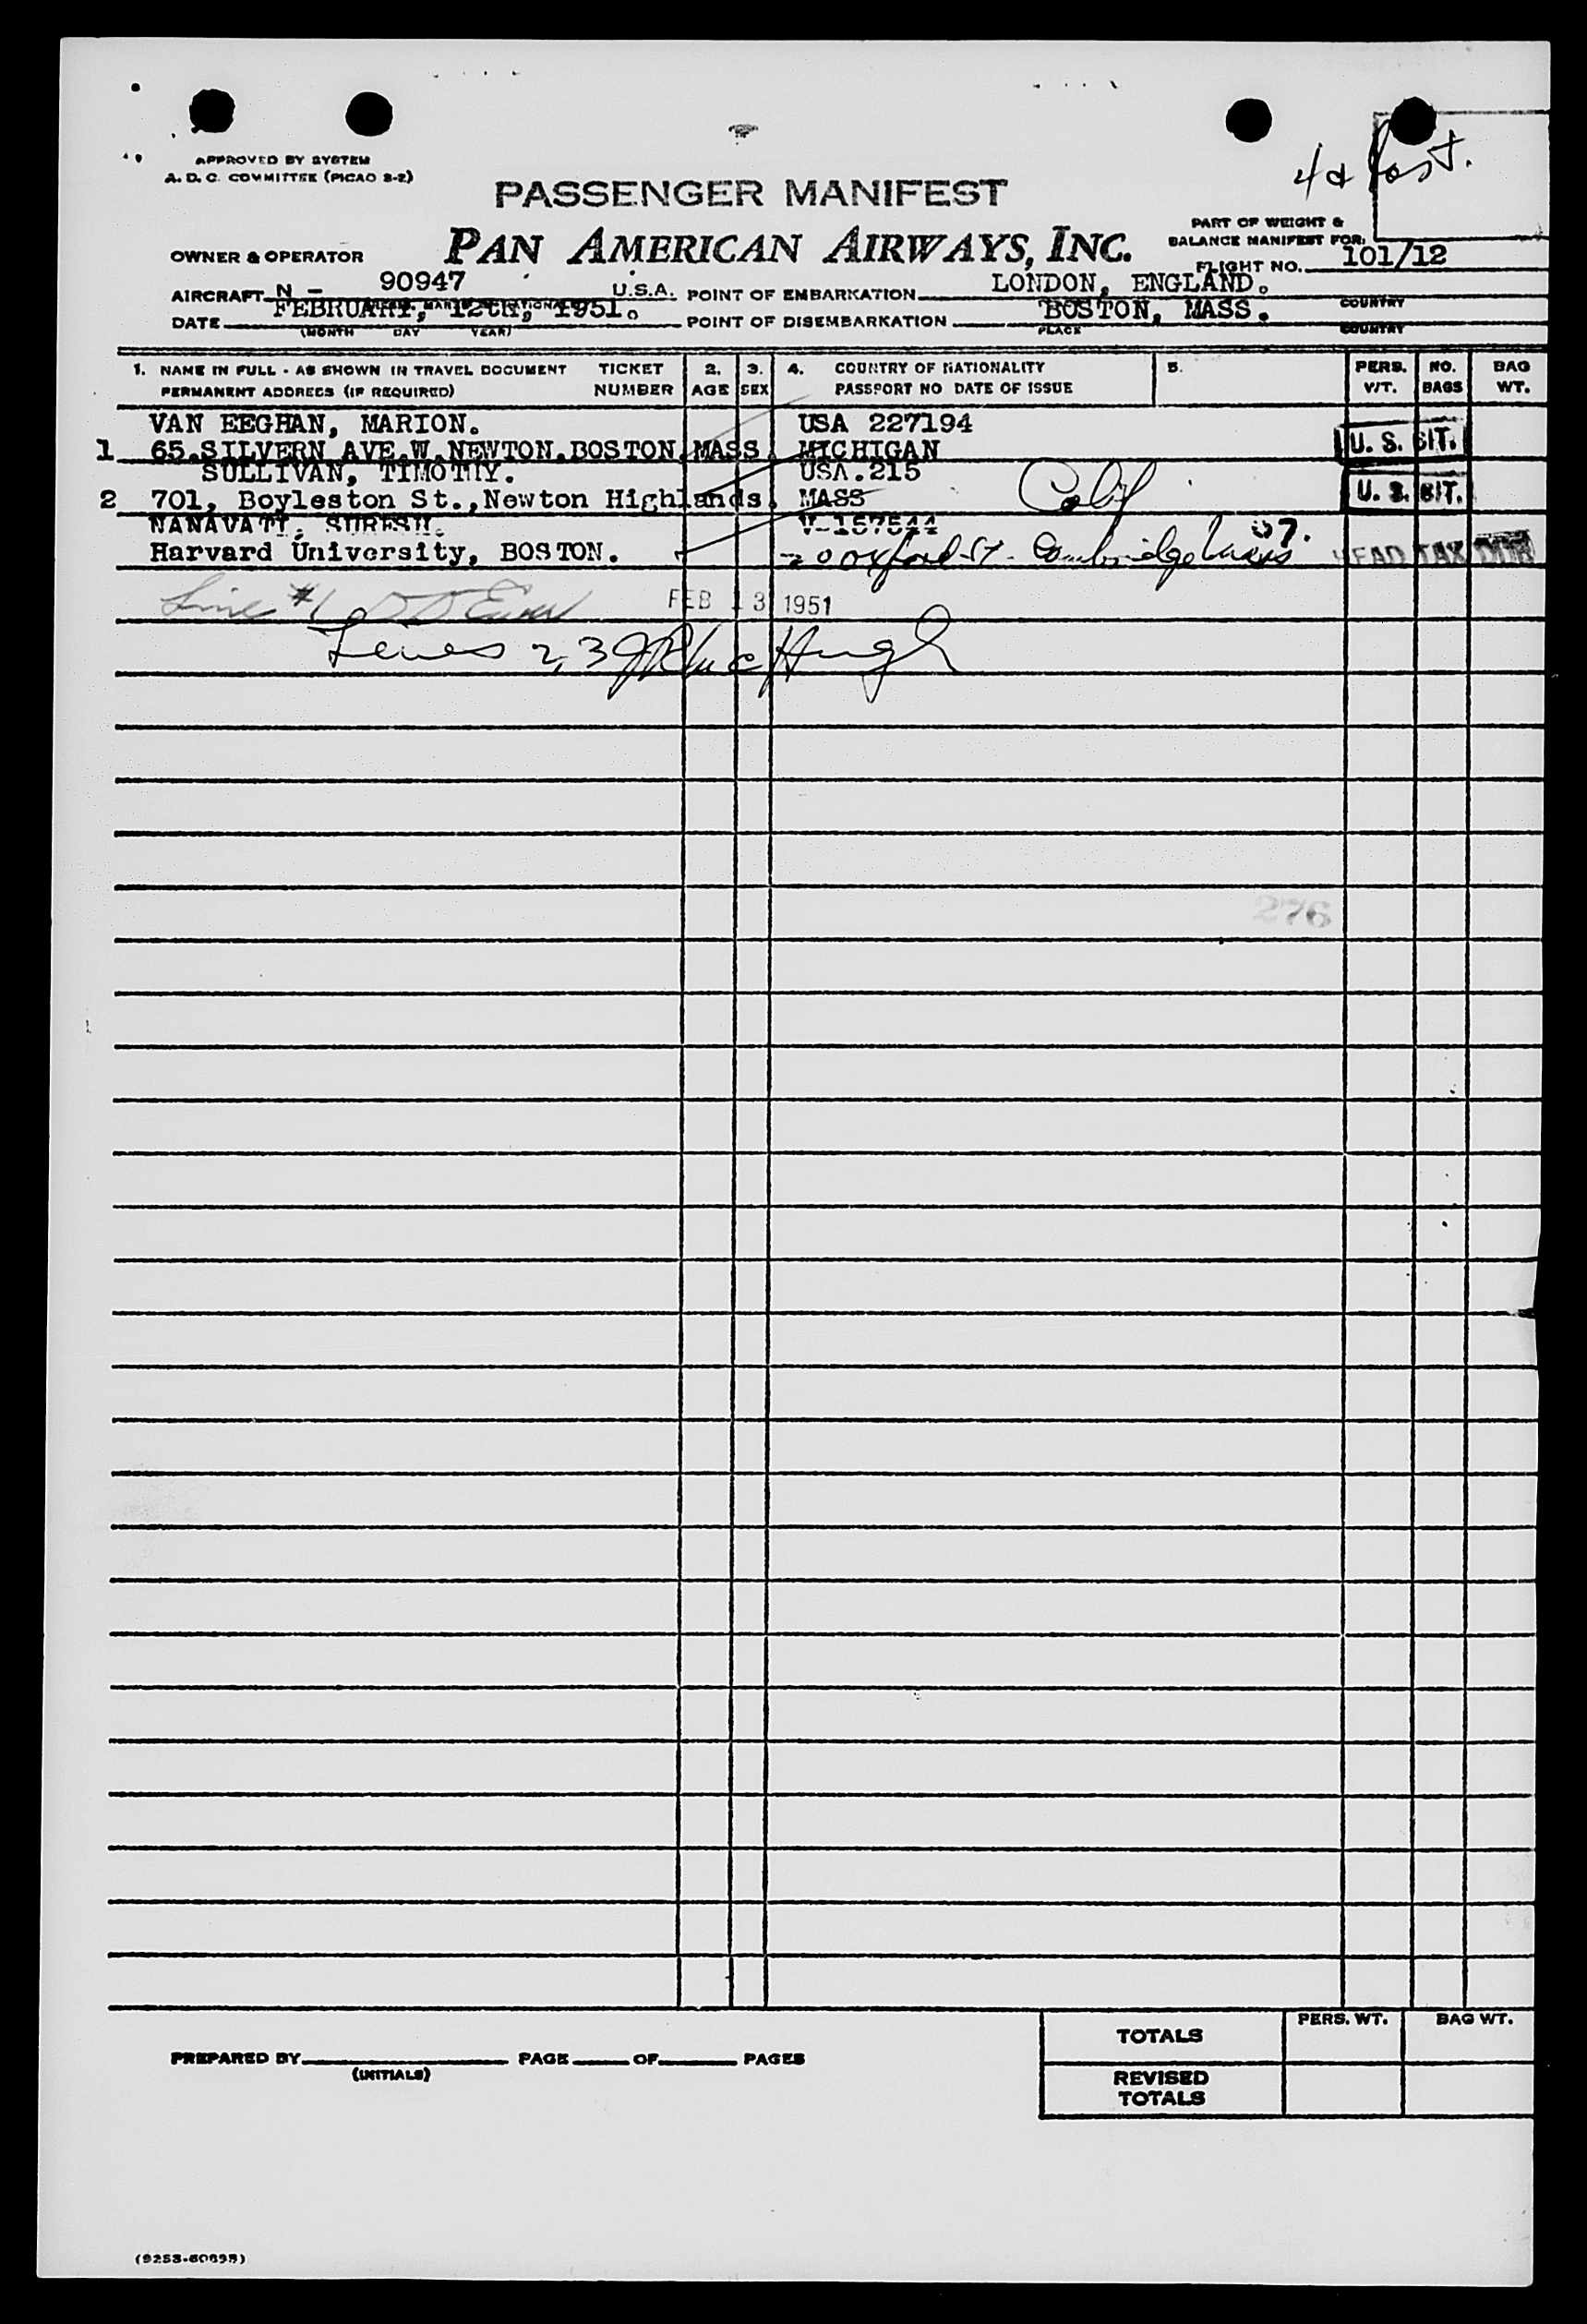 4 & Post.
APPROVED BY SYSTEM
A. D. C. COMMITTEE (PICAO 8-2)
PASSENGER MANIFEST
PART OF WEIGHT &
BALANCE MANIFEST FOR
OWNER & OPERATOR PAN AMERICAN AIRWAYS, INC. FLIGHT NO. 101/12
AIRCRAFT N - 90947 U.S.A. POINT OF EMBARKATION LONDON, ENGLAND. COUNTRY
DATE FEBRUARY, 12th, 1951. POINT OF DISEMBARKATION BOSTON, MASS.
(MONTH DAY YEAR) PLACE COUNTRY
1. NAME IN FULL - AS SHOWN IN TRAVEL DOCUMENT TICKET 2. 3. 4. COUNTRY OF NATIONALITY 5. PERS. NO. BAG
PERMANENT ADDRESS (IF REQUIRED) NUMBER AGE SEX PASSPORT NO DATE OF ISSUE WT. BAGS WT.
VAN EEGHAN, MARION. USA 227194
1 65.SILVERN AVE.W.NEWTON.BOSTON.MASS. MICHIGAN U. S. CIT.
SULLIVAN, TIMOTHY. USA.215
2 701, Boyleston St.,Newton Highlands. MASS Calif U. S. CIT.
NANAVATI, SURESH. V-157544 57.
Harvard University, BOSTON. 20 Oxford St. Cambridge Mass HEAD TAX DUE
Line #1 FEB 13 1951
Lines 2, 3 Hugh
276
TOTALS PERS. WT. BAG WT.
PREPARED BY PAGE OF PAGES
(INITIALS)
REVISED
TOTALS